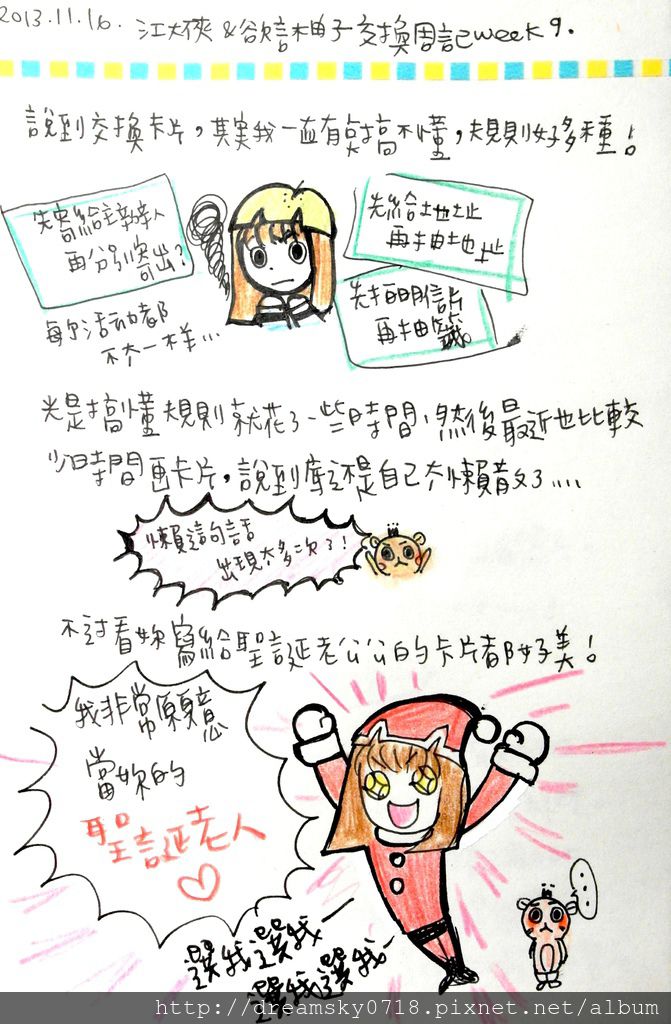 2013.11.16. 江大俠&欲言柚子交換周記week 9.
說到交換卡片，其實我一直有點搞不懂，規則好多種！
先寄給主辦人
再分別寄出？
先給地址
再抽地址
先拍明信片
再抽籤。
每个活动都
不太一樣...
光是搞懂規則就花了一些時間，然後最近也比較
少時間畫卡片，說到底還是自己太懶散了....
懶這句話
出現太多次了！
不過看妳寫給聖誕老公公的卡片都好美！
我非常願意
當妳的
聖誕老人
選我選我
選我選我
...
http://dreamsky0718.pixnet.net/album